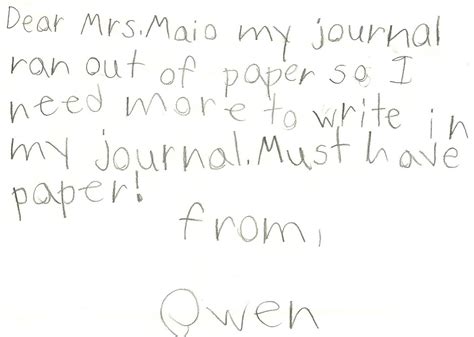 Dear Mrs.Maio my journal
ran out of paper so I
need more to write in
my journal.Must have
paper!
from,
Owen